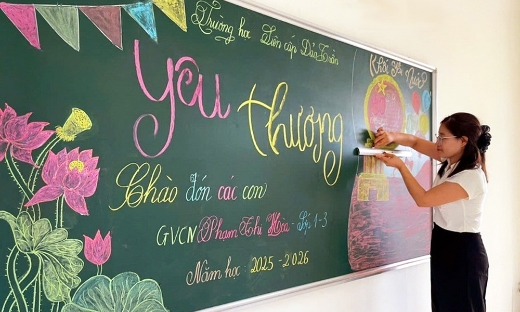 Trường học Liên cấp Dân Tiến
Yêu thương
Chào đón các con
GVCN Phạm Thị Hoa - Lớp 1-3
Năm học 2025 - 2026